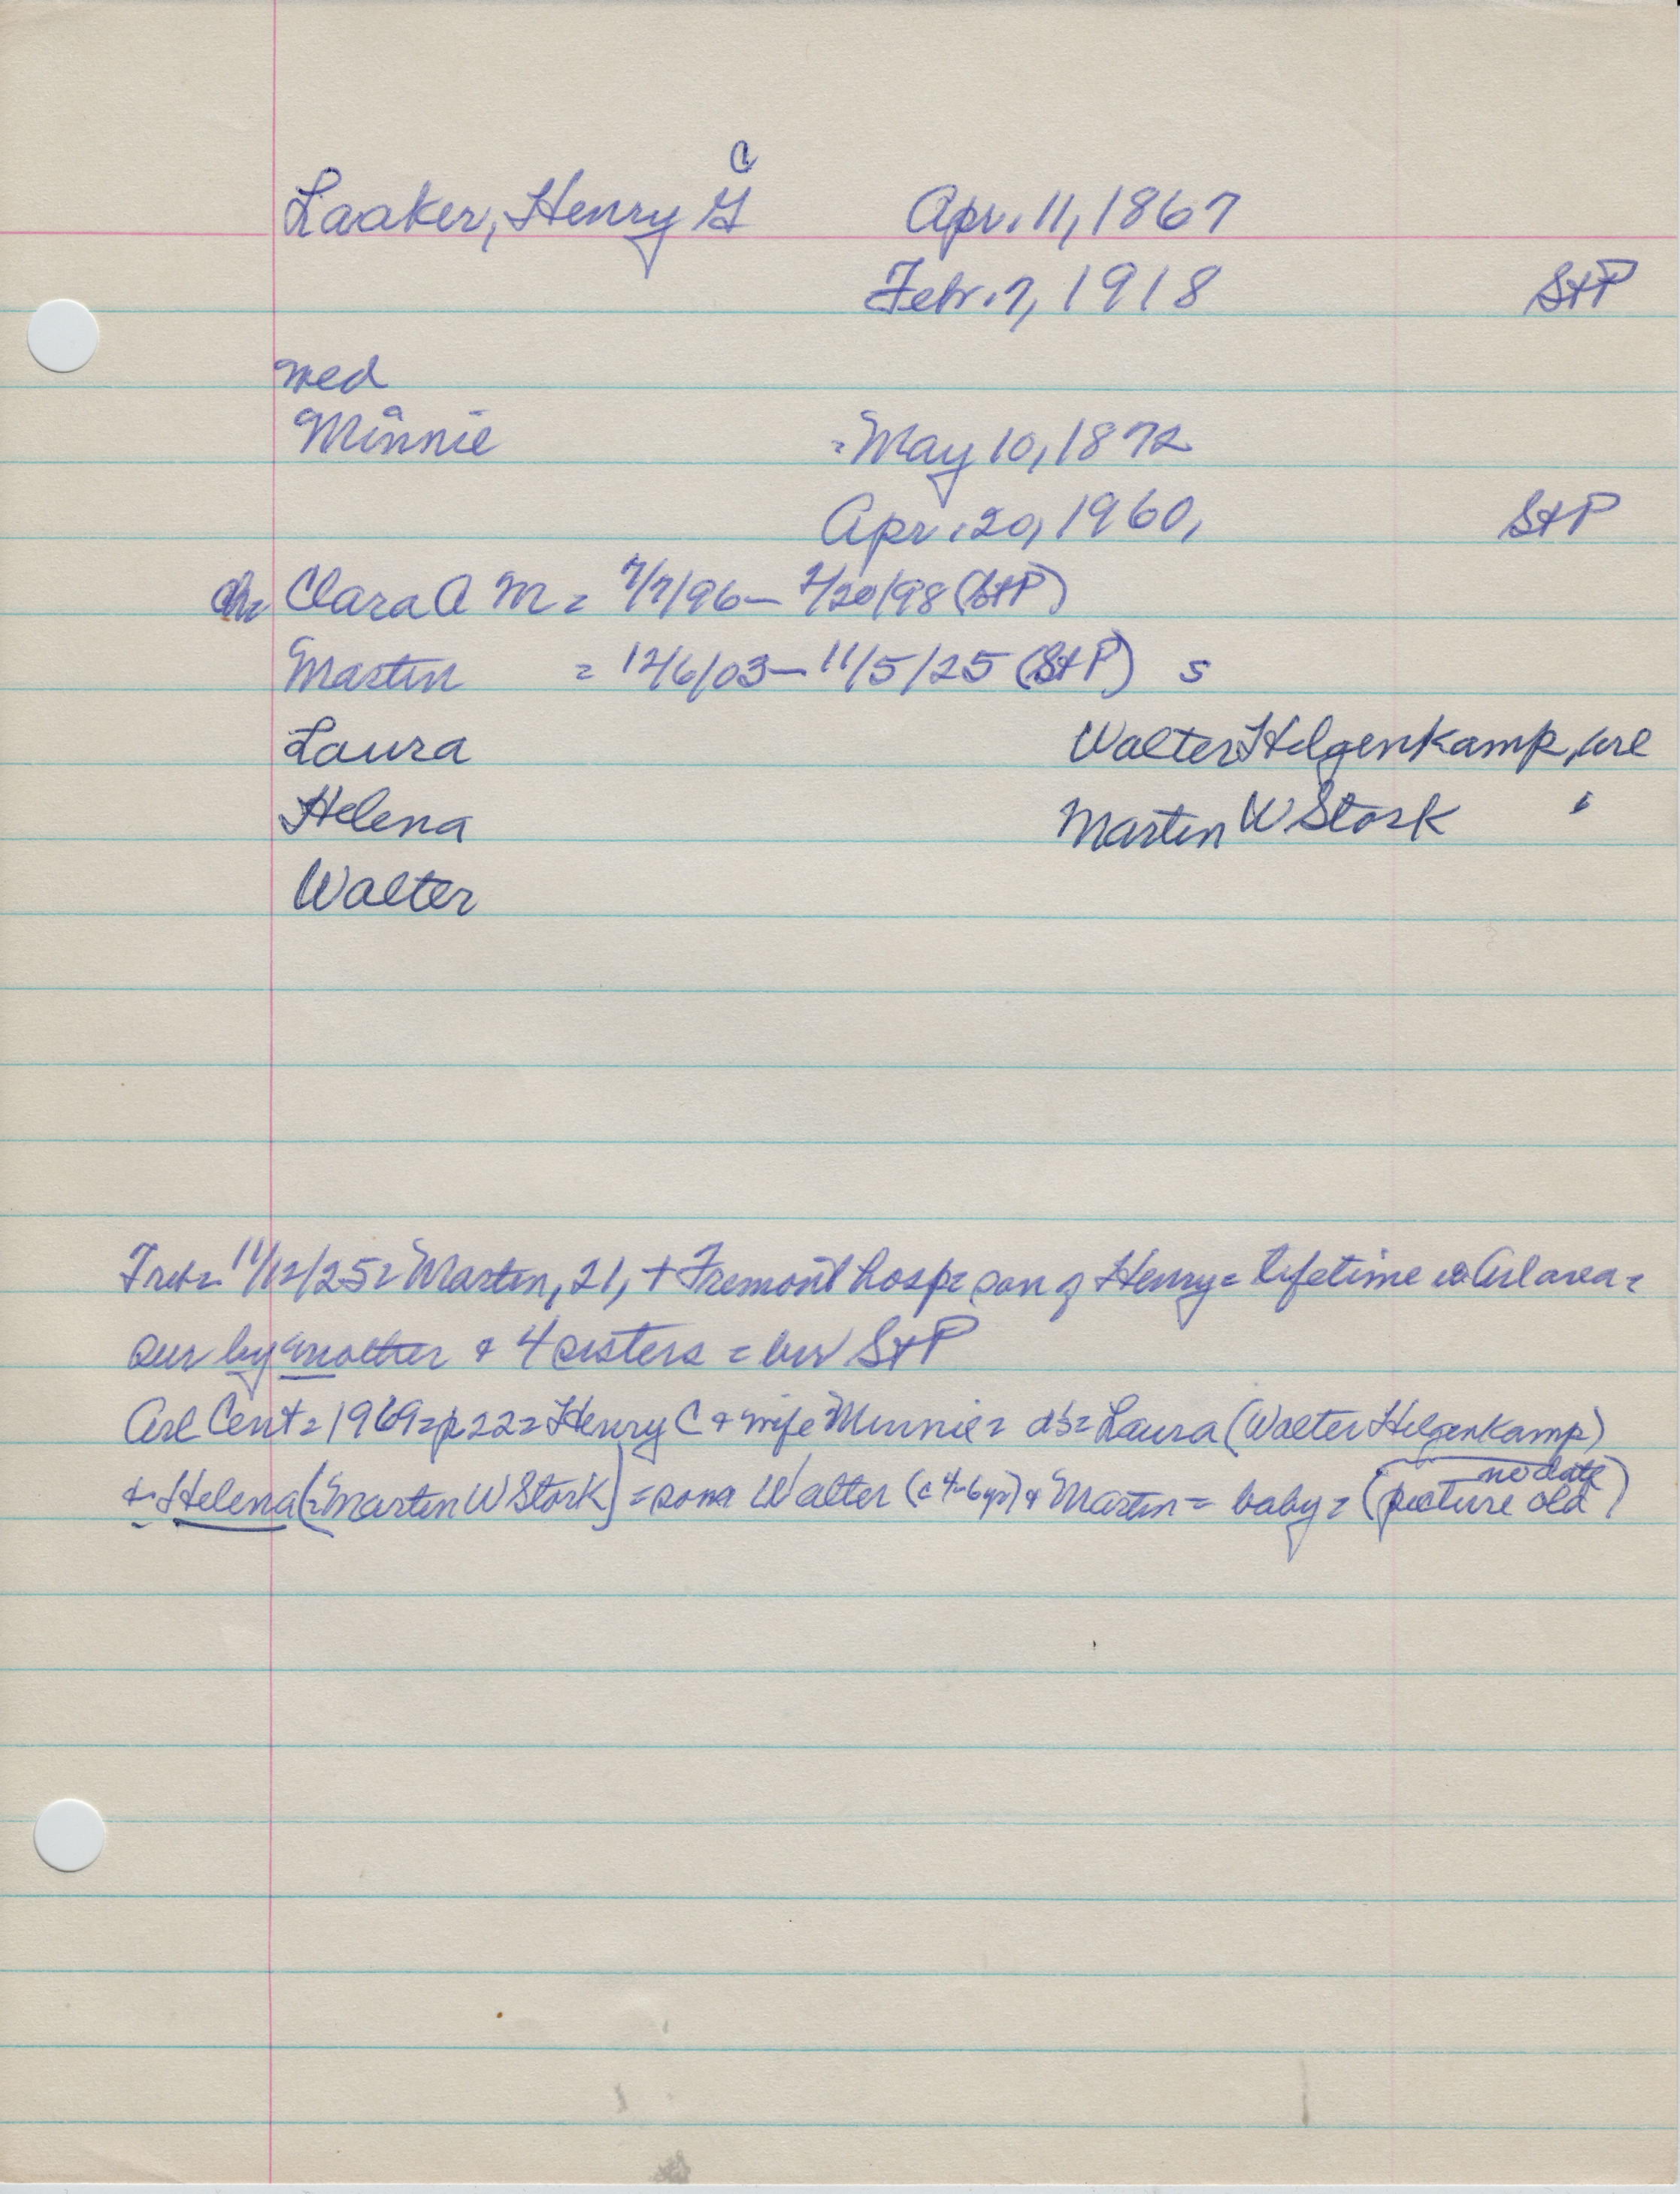 C
Laaker, Henry G Apr. 11, 1867
Febr. 7, 1918 StP
wed
Minnie = May 10, 1872
Apr. 20, 1960, StP
ch= Clara A M = 7/7/96 — 2/20/98 (StP)
Martin = 12/6/03 — 11/5/25 (StP) s
Laura Walter Hilgenkamp, Arl
Helena Martin W Stork "
Walter
Trib= 11/12/25= Martin, 21, + Fremont hosp= son of Henry= lifetime in Arl area=
sur by mother & 4 sisters = bur StP
Arl Cent= 1969= p 22= Henry C & wife Minnie= d's= Laura (Walter Hilgenkamp)
no date
+ Helena (=Martin W Stork) = sons Walter (c 4-6 yrs) & Martin = baby = (picture old)